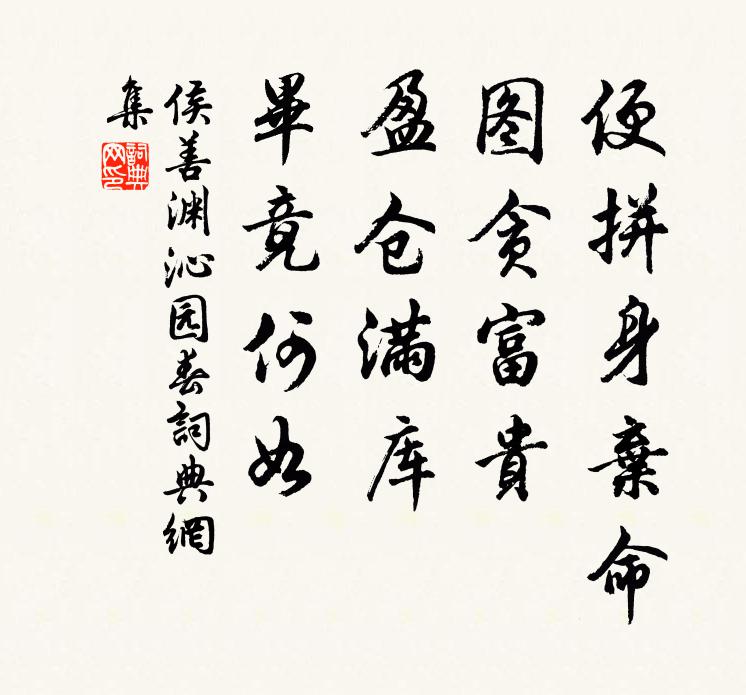 便拼身棄命
图贪富貴
盈仓满库
畢竟何如
侯善渊沁园春詞典網
集
詞典
网印